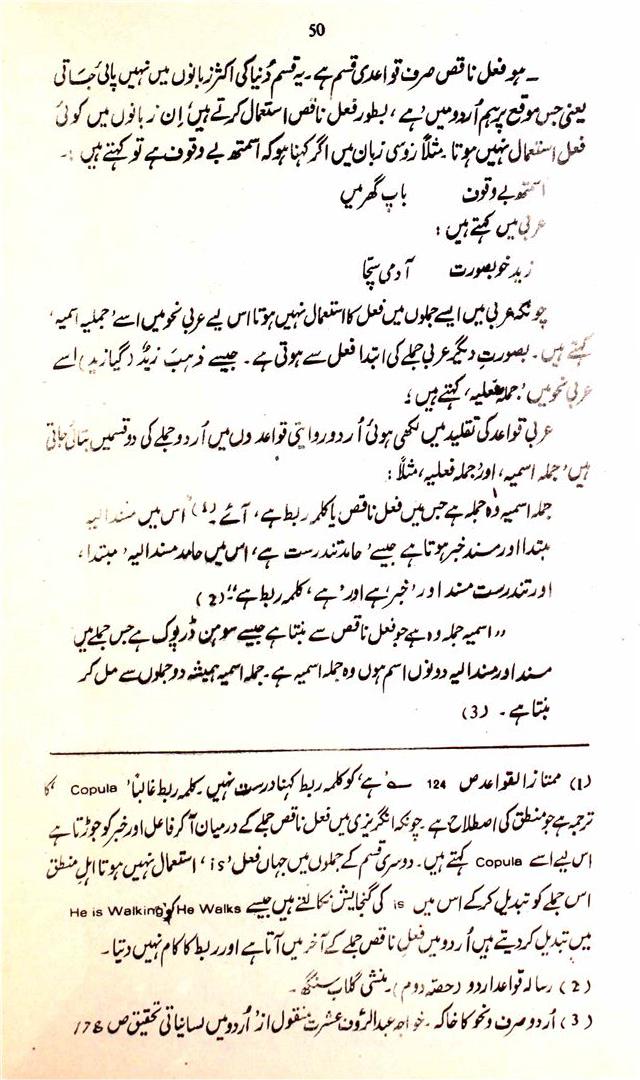 50
ـ ہو فعل ناقص صرف قواعدی قسم ہے۔ یہ قسم دُنیا کی اکثر زبانوں میں نہیں پائی جاتی
یعنی جس موقع پر ہم اُردو میں ’ہے‘ بطور فعل ناقص استعمال کرتے ہیں‘ اِن زبانوں میں کوئی
فعل استعمال نہیں ہوتا۔ مثلاً روسی زبان میں اگر کہنا ہو کہ اسمتھ بے وقوف ہے تو کہتے ہیں :۔
اسمتھ بے وقوف باپ گھر میں
عربی میں کہتے ہیں :
زید خوبصورت آدمی سچّا
چونکہ عربی میں ایسے جملوں میں فعل کا استعمال نہیں ہوتا اس لیے عربی نحو میں اسے ’جملیہ اسمیہ‘
کہتے ہیں۔ بصورتِ دیگر عربی جملے کی ابتدا فعل سے ہوتی ہے۔ جیسے ذہبَ زیدٌ (گیا زید) اسے
عربی نحو میں ’جملہ فعلیہ‘ کہتے ہیں :
عربی قواعد کی تقلید میں لکھی ہوئی اُردو روایتی قواعدوں میں اُردو جملے کی دو قسمیں بتائی جاتی
ہیں‘ جملہ اسمیہ‘ اور جملہ فعلیہ‘ مثلاً :
جملہ اسمیہ وہ جملہ ہے جس میں فعل ناقص یا کلمہ ربط ہے‘ آئے۔ (1) ”اس میں مسند الیہ
مبتدا اور مسند خبر ہوتا ہے جیسے ’حامد تندرست ہے‘ اس میں حامد مسند الیہ ’مبتدا‘
اور تندرست مسند اور ’خبر‘ ہے اور ’ہے‘ کلمہ ربط ہے“ (2)
”اسمیہ جملہ وہ ہے جو فعل ناقص سے بنتا ہے جیسے سوہن ڈرپوک ہے جس جملے میں
مسند اور مسند الیہ دونوں اسم ہوں وہ جملہ اسمیہ ہے۔ جملہ اسمیہ ہمیشہ دو جملوں سے مل کر
بنتا ہے۔ (3)
(1) ممتاز القواعد ص 124 ؎ ’ہے‘ کو کلمہ ربط کہنا درست نہیں۔ کلمہ ربط غالباً ’Copula‘ کا
ترجمہ ہے جو منطق کی اصطلاح ہے۔ چونکہ انگریزی میں فعل ناقص جملے کے درمیان آکر فاعل اور خبر کو جوڑتا ہے
اس لیے اسے Copula کہتے ہیں۔ دوسری قسم کے جملوں میں جہاں فعل ’is‘ استعمال نہیں ہوتا اہلِ منطق
اس جملے کو تبدیل کرکے اس میں is کی گنجایش نکالتے ہیں جیسے He Walks کو He is Walking
میں تبدیل کردیتے ہیں اُردو میں فعلِ ناقص جملے کے آخر میں آتا ہے اور ربط کا کام نہیں دیتا۔
(2) رسالہ قواعد اردو (حصّہ دوم)۔ منشی گلاب سنگھ۔
(3) اُردو صرف و نحو کا خاکہ۔ خواجہ عبدالرؤف عشرت منقول از ’اُردو میں لسانیاتی تحقیق ص 178